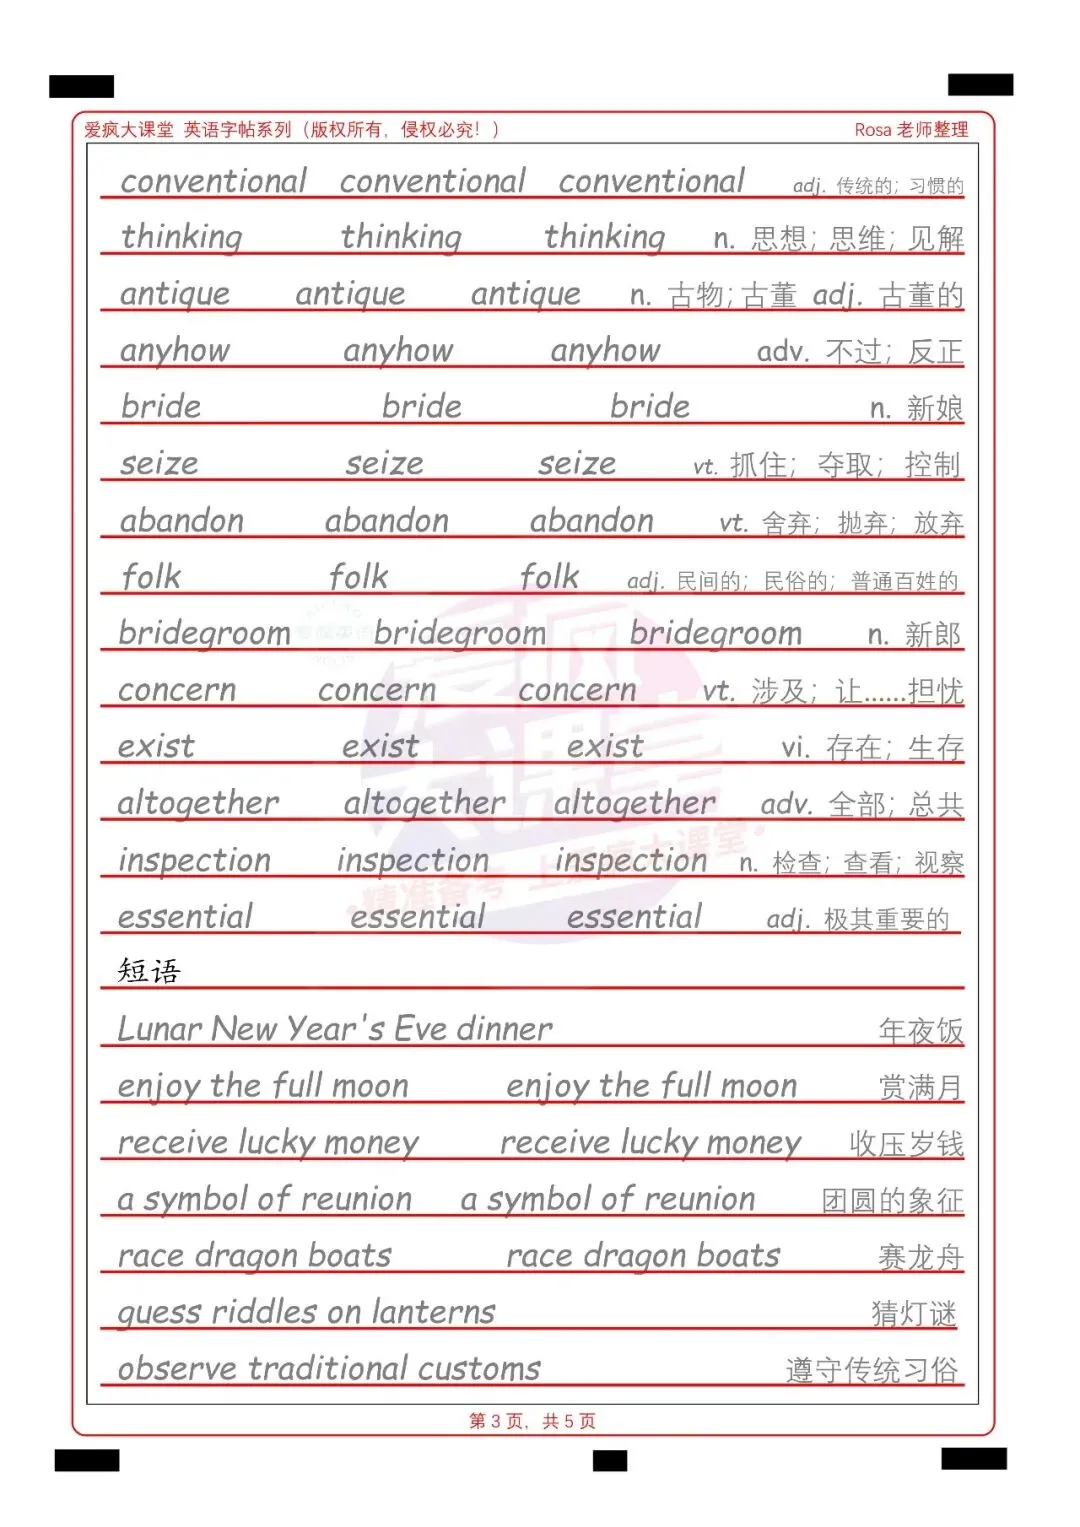 爱疯大课堂 英语字帖系列（版权所有，侵权必究！） Rosa 老师整理
conventional conventional conventional adj. 传统的；习惯的
thinking thinking thinking n. 思想；思维；见解
antique antique antique n. 古物；古董 adj. 古董的
anyhow anyhow anyhow adv. 不过；反正
bride bride bride n. 新娘
seize seize seize vt. 抓住； 夺取； 控制
abandon abandon abandon vt. 舍弃；抛弃；放弃
folk folk folk adj. 民间的；民俗的；普通百姓的
bridegroom bridegroom bridegroom n. 新郎
concern concern concern vt. 涉及；让……担忧
exist exist exist vi. 存在；生存
altogether altogether altogether adv. 全部；总共
inspection inspection inspection n. 检查；查看；视察
essential essential essential adj. 极其重要的
短语
Lunar New Year's Eve dinner 年夜饭
enjoy the full moon enjoy the full moon 赏满月
receive lucky money receive lucky money 收压岁钱
a symbol of reunion a symbol of reunion 团圆的象征
race dragon boats race dragon boats 赛龙舟
guess riddles on lanterns 猜灯谜
observe traditional customs 遵守传统习俗
第 3 页，共 5 页
爱疯大课堂
·精准备考 上爱疯大课堂·